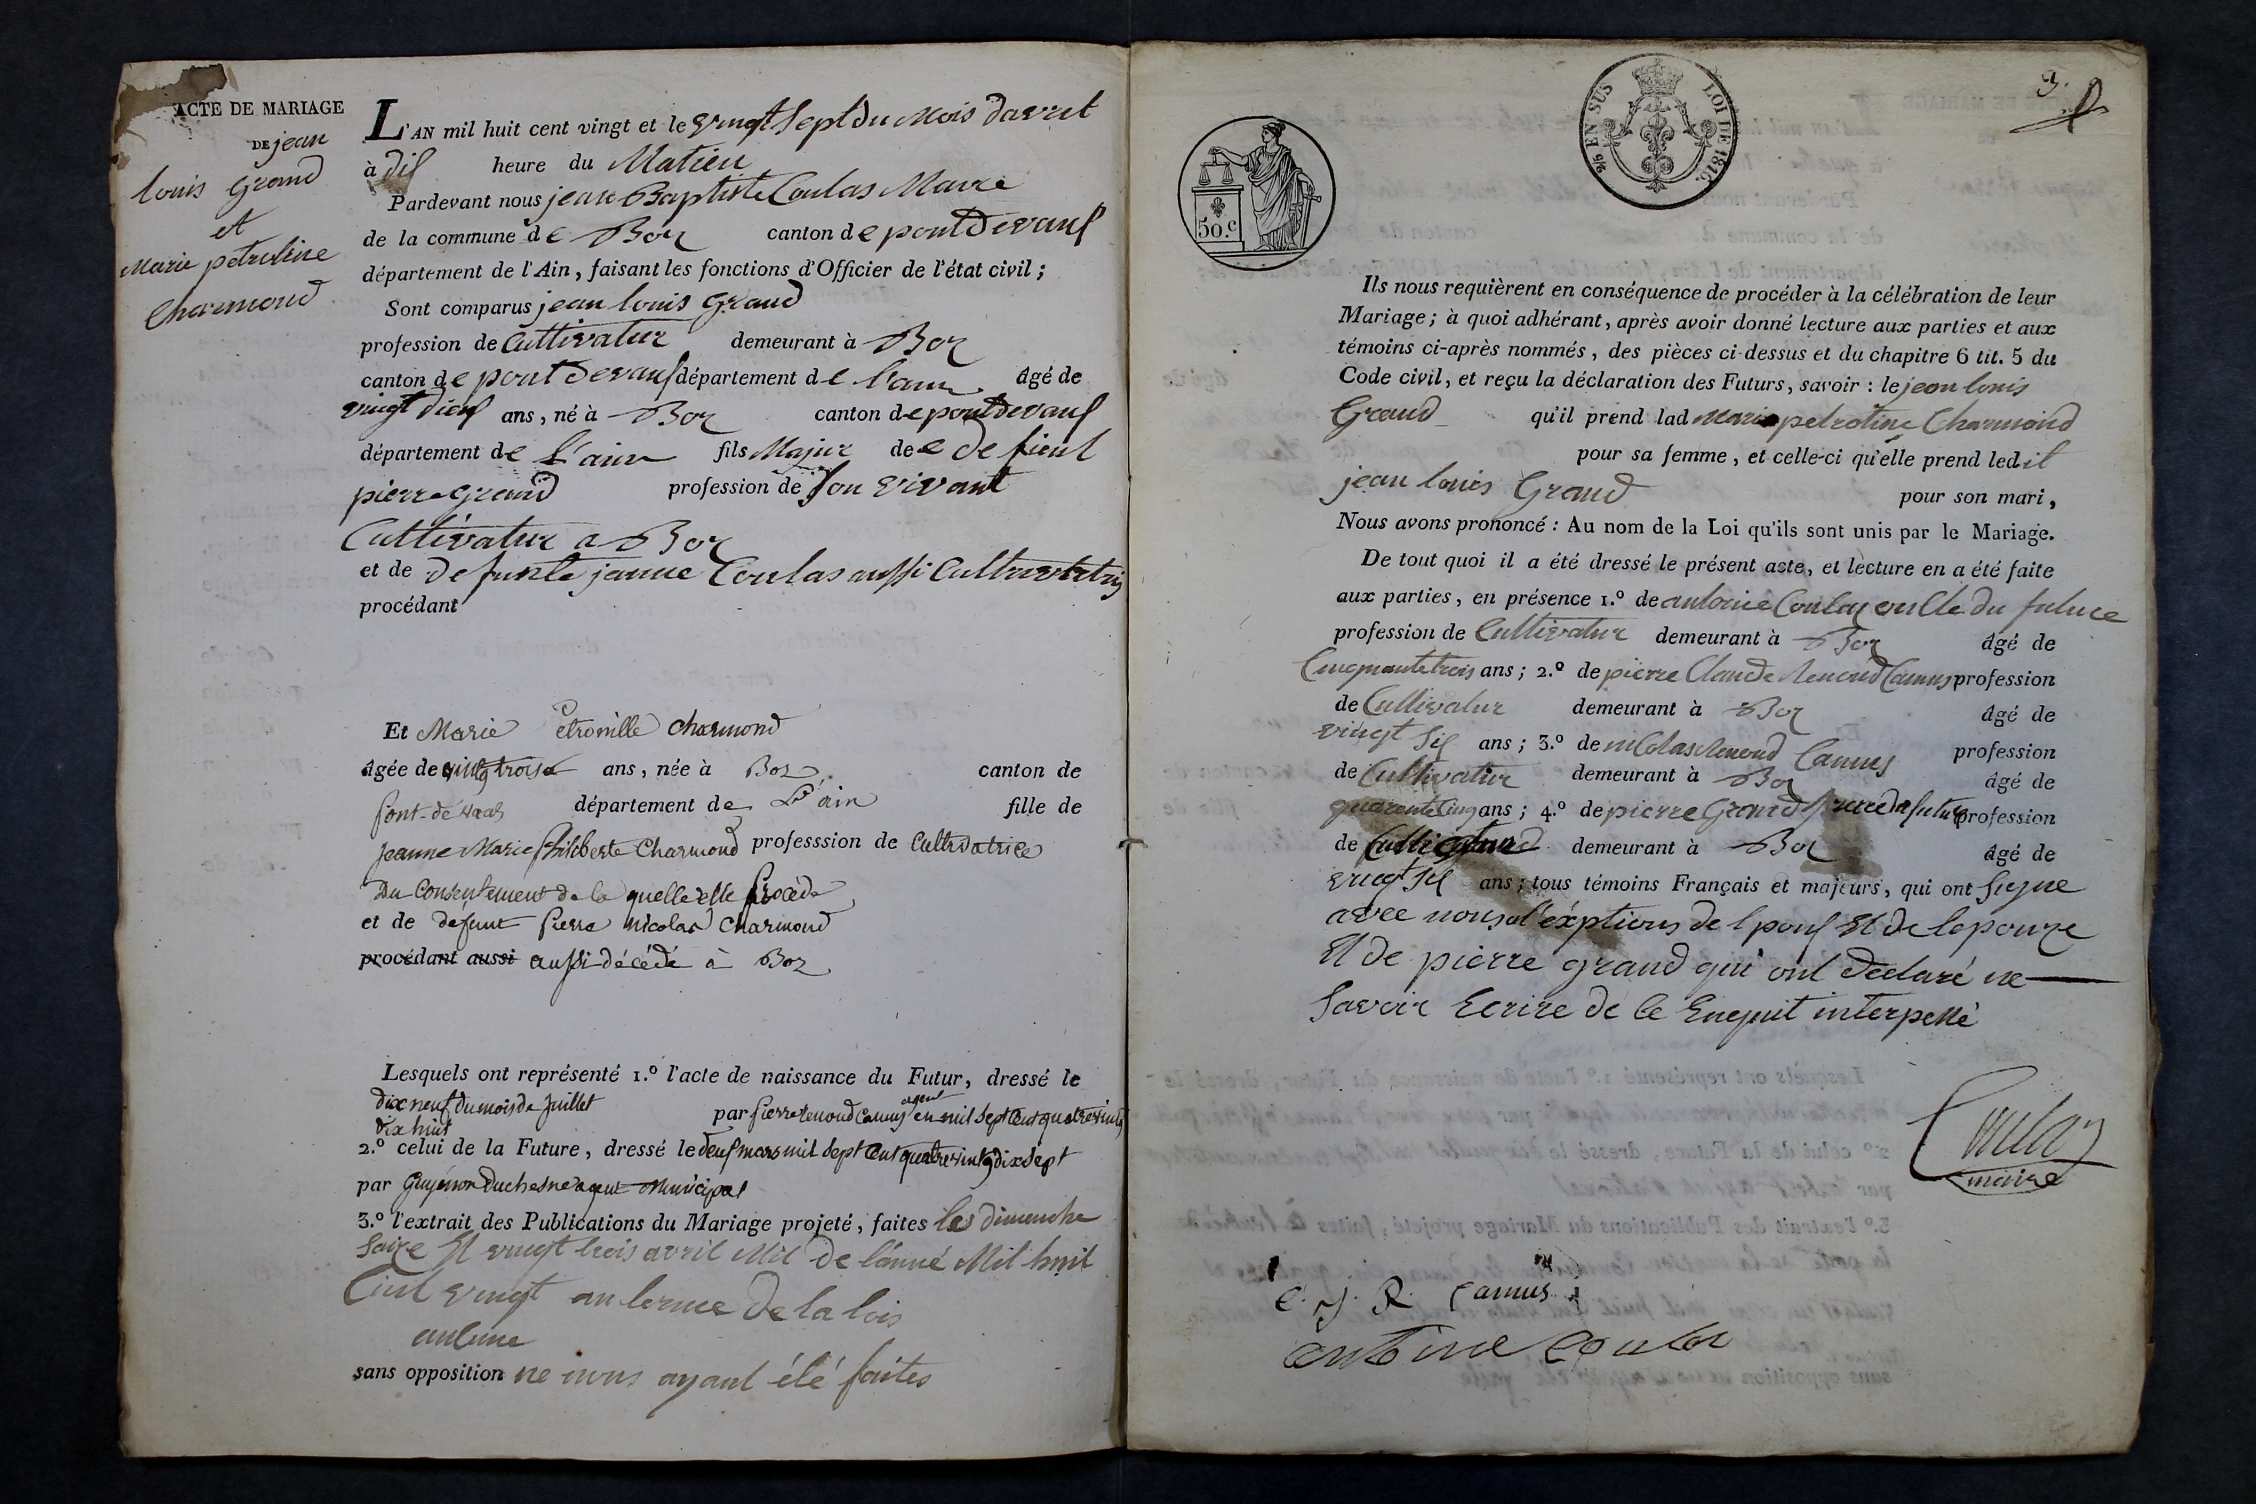 ACTE DE MARIAGE
DE jean
louis Grand
et
Marie petroline
Charmond
L'AN mil huit cent vingt et le vingt sept du Mois davril
à dis heure du Matien
Pardevant nous jean Baptiste Coulas Maire
de la commune de Boz canton de pontdevaux
département de l'Ain, faisant les fonctions d'Officier de l'état civil ;
Sont comparus jean louis Grand
profession de Cultivatur demeurant à Boz
canton de pont devaux département de l'ain âgé de
vingt deux ans, né à Boz canton de pontdevaux
département de l'ain fils Majur de
pierre Grand profession de son vivant
Cultivatur a Boz
et de defunte jeanne Coulas aussi Cultivatris
procédant
Et Marie Petronille Charmond
âgée de vingt trois ans, née à Boz canton de
pont-de-vaux département de L'ain fille de
Jeanne Marie Philiberte Charmond professsion de Cultivatrice
Du Consentement de la quelle elle procède
et de défunt Pierre nicolas Charmond
procédant aussi aussi décédé à Boz
Lesquels ont représenté 1.º l'acte de naissance du Futur, dressé le
dix neuf du mois de Juillet par Pierre Renoud Camus agent en mil sept cent quatre vingt
dix huit
2.º celui de la Future, dressé le deux mars mil sept cent quatre vingt dix sept
par Guyénon Duchesne agent Municipal
3.º l'extrait des Publications du Mariage projeté, faites les dimenche
saize Et vingt trois avril Mil de lanné Mil huit
Cent vingt au terme de la lois
aucune
sans opposition ne nous ayant été faites
3.
50.c
2/5 EN SUS
LOI DE 1816.
Ils nous requièrent en conséquence de procéder à la célébration de leur
Mariage ; à quoi adhérant, après avoir donné lecture aux parties et aux
témoins ci-après nommés, des pièces ci-dessus et du chapitre 6 tit. 5 du
Code civil, et reçu la déclaration des Futurs, savoir : le jean louis
Grand qu'il prend lad Marie petroline Charmond
pour sa femme, et celle-ci qu'elle prend ledit
jean louis Grand pour son mari,
Nous avons prononcé : Au nom de la Loi qu'ils sont unis par le Mariage.
De tout quoi il a été dressé le présent acte, et lecture en a été faite
aux parties, en présence 1.º de antoine Coulas oncle du future
profession de Cultivatur demeurant à Boz âgé de
Cinquante trois ans ; 2.º de pierre Claude Renoud Camus profession
de Cultivatur demeurant à Boz âgé de
vingt six ans ; 3.º de nicolas Renoud Camus profession
de Cultivatur demeurant à Boz âgé de
quarente Cinq ans ; 4.º de pierre Grand frere du futur profession
de Cultivatur demeurant à Boz âgé de
vingt six ans ; tous témoins Français et majeurs, qui ont signe
avec nous a l'exptions de lpoux Et de lepouze
Et de pierre grand qui ont déclaré ne
savoir Ecrire de ce Enquit interpellé
Coulas
maire
C. R. Camus
antoine coulas